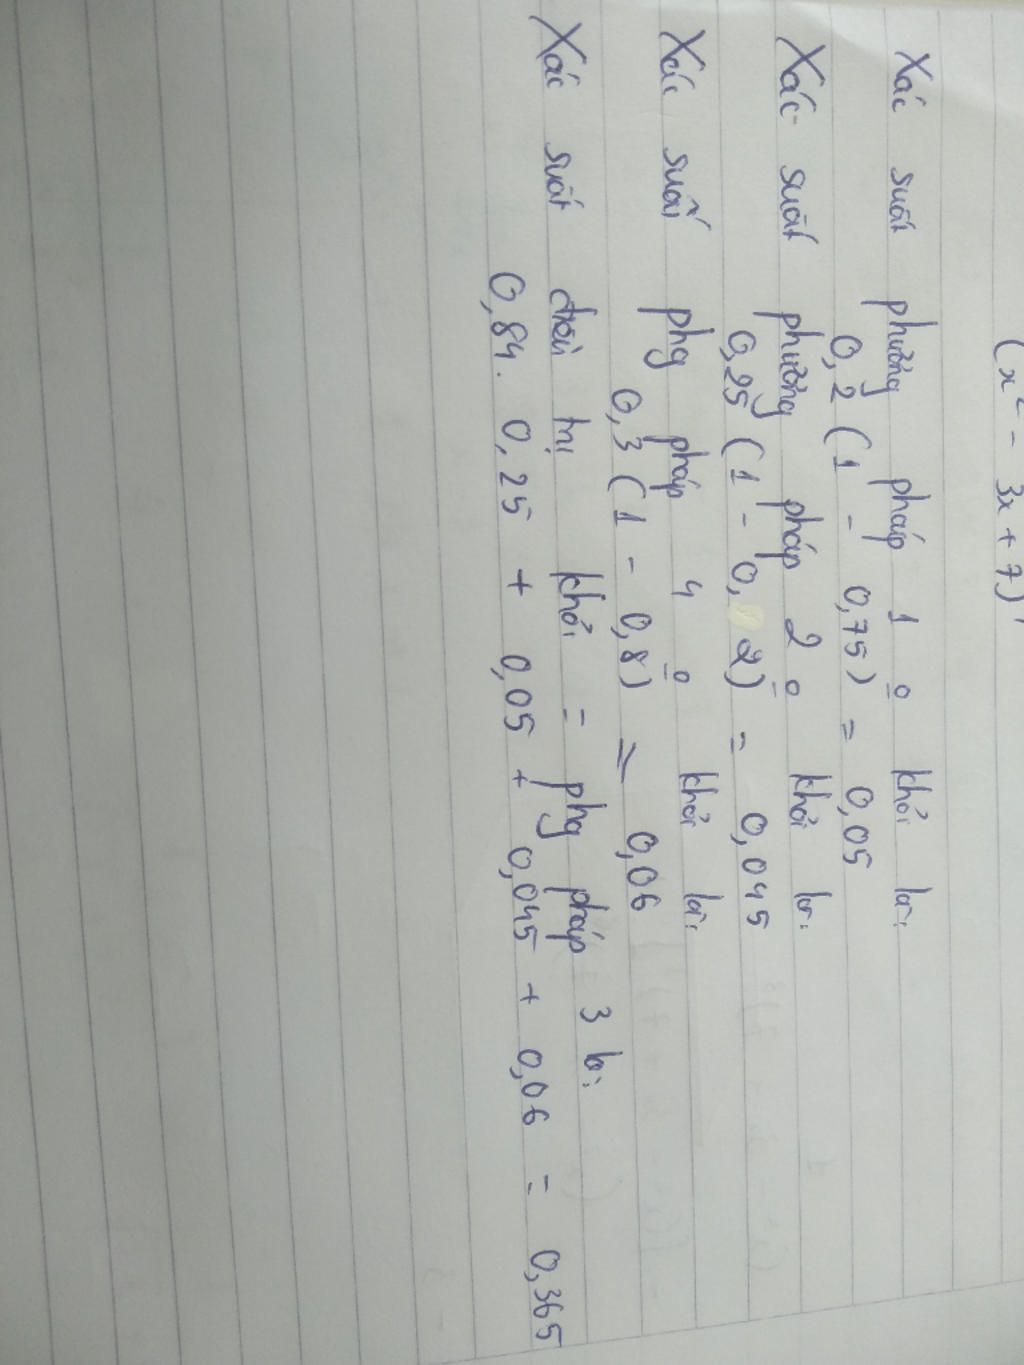 (x² - 3x + 7)'
Xác suất phương pháp 1 o khỏi là:
0,2 (1 - 0,75) = 0,05
Xác suất phương pháp 2 o khỏi là:
0,25 (1 - 0, 2) = 0,045
Xác suất phg pháp 4 o khỏi là:
0,3 (1 - 0,8) = 0,06
Xác suất điều trị khỏi = phg pháp 3 là:
0,84. 0,25 + 0,05 + 0,045 + 0,06 = 0,365